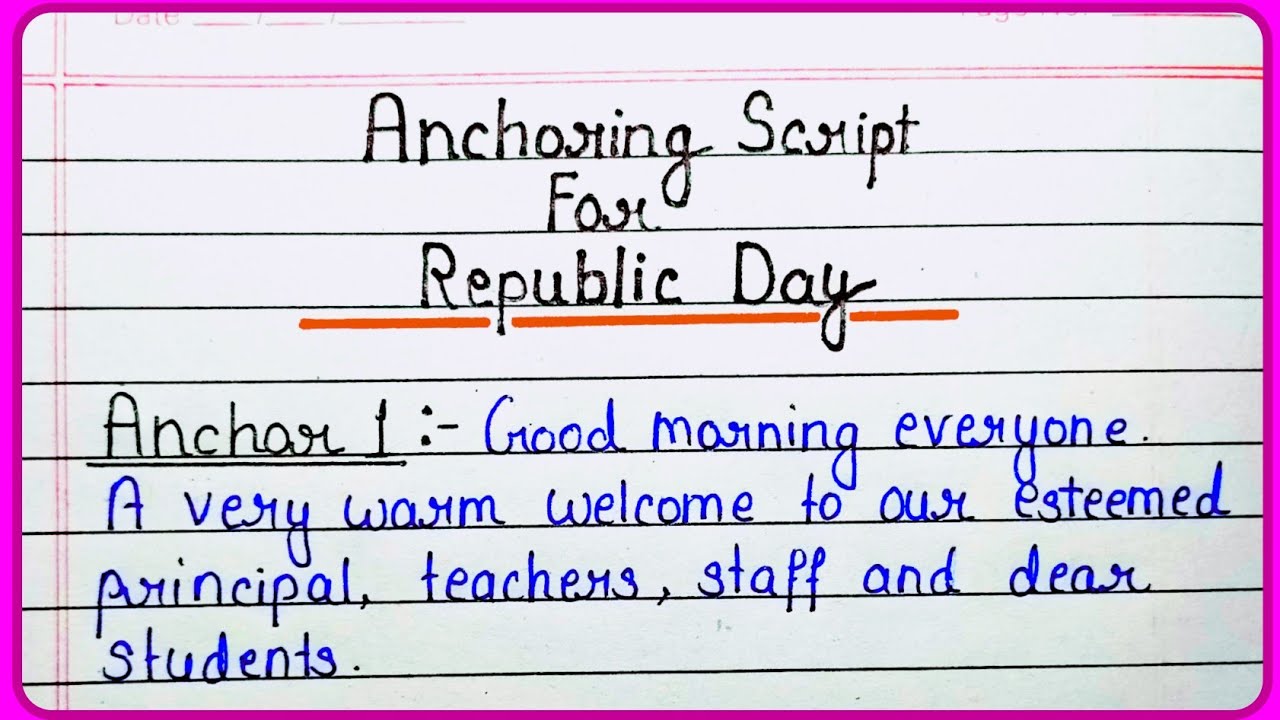 Date __/__/__
Page No.
Anchoring Script
For
Republic Day
Anchor 1 :- Good morning everyone.
A very warm welcome to our esteemed
principal, teachers, staff and dear
students.